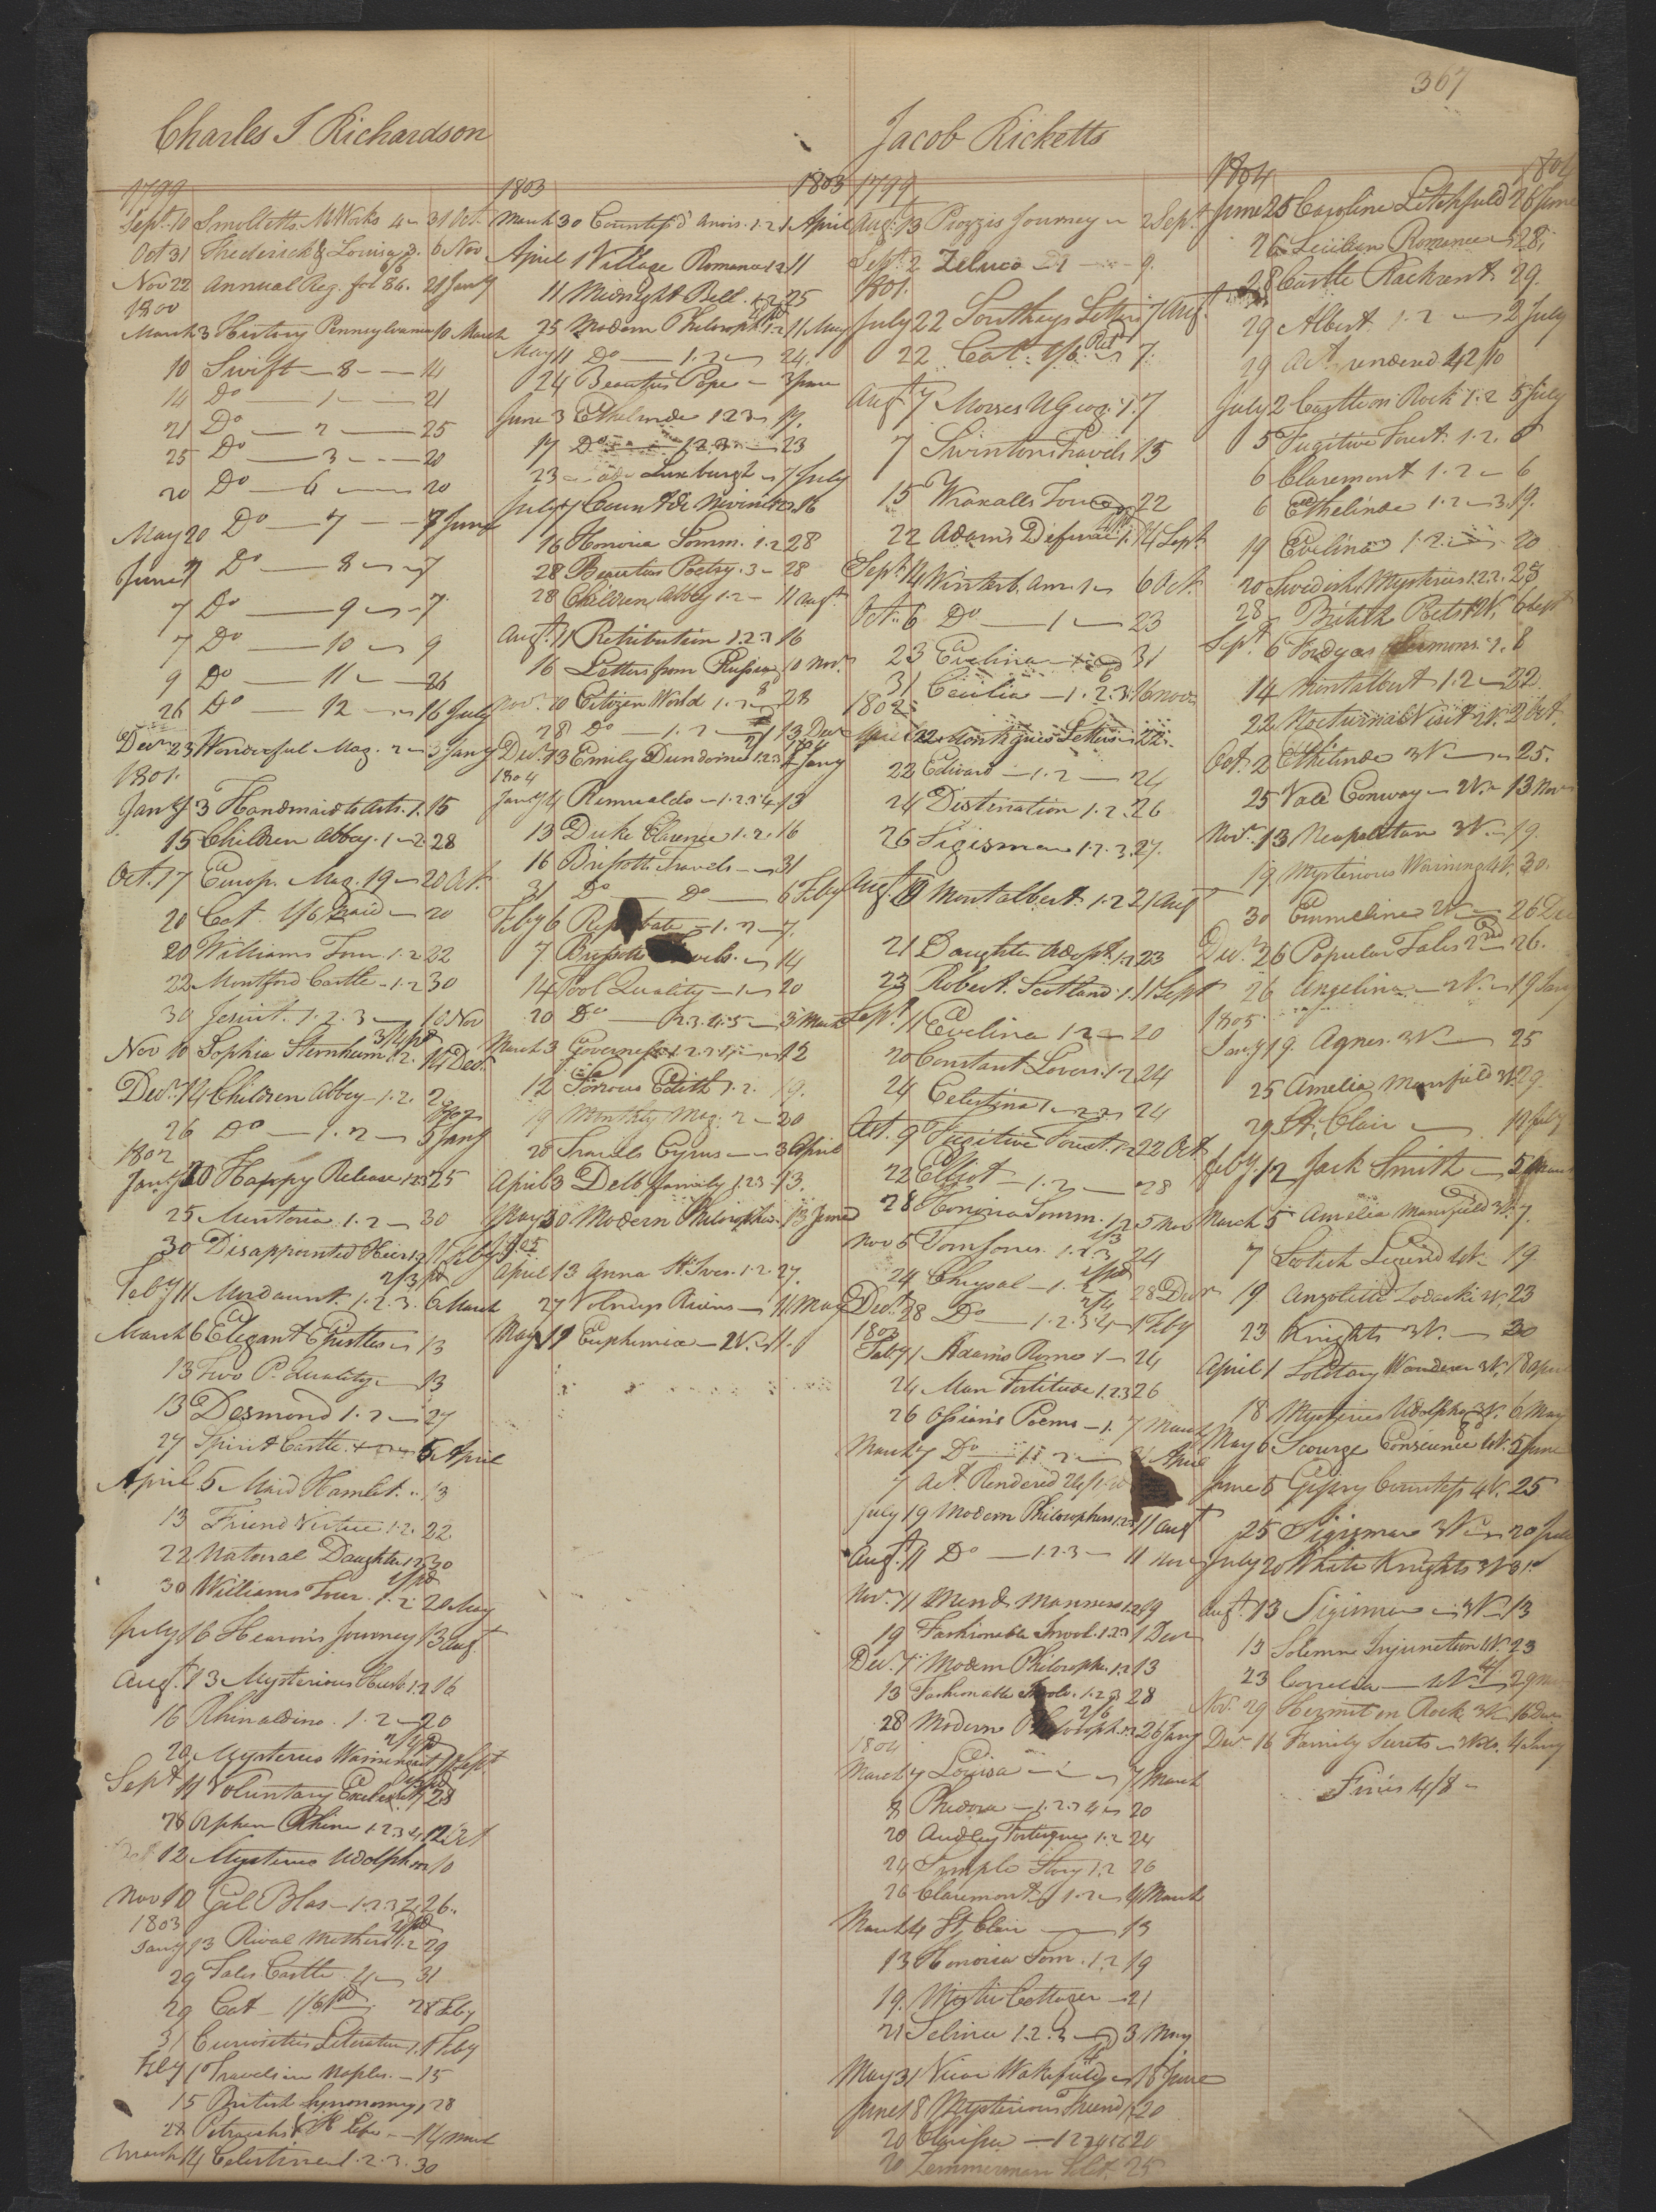 367
Charles J Richardson
1799
Sept. 10 Smolletts Works 4 31 Oct.
Oct 31 Frederick & Louisa 6 Nov
Nov 22 Annual Reg. for 86. 21 Jany
1800
March 3 History Pennsylvania 10 March
10 Swift — 8 — 14
14 Do — 1 — 21
21 Do — 2 — 25
25 Do — 3 — 20
20 Do — 6 — 20
May 20 Do — 7 — 7 June
June 7 Do — 8 — 7
7 Do — 9 — 7
7 Do — 10 — 9
9 Do — 11 — 26
26 Do — 12 — 16 July
Decr 23 Wonderful Mag. 2 — 3 Jany
1801.
Jany 3 Handmaid to Arts. 1. 15
15 Children Abbey. 1-2. 28
Oct. 17 Europ. Mag. 19 — 20 Oct.
20 Cat. 1/6 paid — 20
20 Williams Tour. 1.2 22
22 Montford Castle — 1.2 30
30 Jesuit. 1.2.3 — 10 Nov
Nov 10 Sophia Sternheim 1.2. 14 Dec.
Decr. 14 Children Abbey — 1.2. 2
26 Do — 1.2 — 5 Jany
1802
Jany 20 Happy Release 1.2.3 25
25 Mentoria. 1.2 — 30
30 Disappointed Heir 1.2 11 Feby
Feby 11 Mordaunt. 1.2.3. 6 March
March 6 Elegant Epistles — 13
13 Two P. Quality — 13
13 Desmond 1.2 — 27
27 Spirit Castle. 5 April
April 5 Maid Hamlet. 13
13 Friend Virtue 1.2. 22
22 Natural Daughter 1.2 30
30 Williams Tour. 1.2. 20 May
July 16 Hearn's Journey 13 Augt
Augt. 13 Mysterious Husb. 1.2 16
16 Rhinaldino. 1.2 — 20
20 Mysterious Warning 11 Sept.
Sept 11 Voluntary Exile 28
28 Orphan Rhine 1.2.3.4 12 Oct
12 Mysteries Udolpho 10
Nov 10 Gil Blas — 1.2.3. 26.
1803
Jany 13 Rival Mothers 1.2 29
29 Tales Castle. 4 — 31
29 Cat — 1/6 pd 28 Feby
31 Curiosities Literature 1. 1 Feby
Feby 1 Travels in Naples. — 15
15 British Synonomy 1 28
28 Petrarchs Life — 14 March
March 14 Celestina 1.2.3. 30
1803 1803
March 30 Countess d'Anois. 1.2 1 April
April 1 Village Romance 1.2 11
11 Midnight Bell. 1.2 25
25 Modern Philosoph. 1.2 11 May
May 11 Do — 1.2 — 24.
24 Beauties Pope — 3 June
June 3 Ethelinde 1.2.3 — 17.
17 Do — 1.2.3 — 23
23 Luxburgh — 7 July
July 7 Count de 16
16 Honoria Somm. 1.2 28
28 Beauties Poetry. 3 — 28
28 Children Abbey 1.2 — 11 Augt.
Augt. 11 Retribution 1.2.3 16
16 Letters from Russia 10 Novr
Novr. 10 Citizen World 1.2 28
28 Do — 1.2 — 13 Decr
Decr. 13 Emily Dundorne 1.2.3 4 Jany
1804
Jany 4 Romualdo — 1.2.3.4 13
13 Duke Clarence 1.2. 16
16 Brissotts Travels — 31
31 Do — Do — 6 Feby
Feby 6 Reprobate — 1.2 — 7.
7 Brissotts Travels. — 14
14 Fool Quality — 1 — 20
20 Do — 1.2.3.4.5 — 3 March
March 3 Governess 1.2.3.4 — 12
12 Sorrows Edith 1.2. 19.
19 Monthly Mag. 2 — 20
20 Travels Cyrus — 3 April
April 3 Delb. family 1.2.3 13.
May 30 Modern Philosopher 13 June
1805
April 13 Anna St. Ives. 1.2. 27.
27 Volneys Ruins — 11 May
May 11 Euphemia — 2 V. 11.
Jacob Ricketts
1799
Augt. 13 Piozzis Journey — 2 Sept.
Sept. 2 Zeluco 9.
1801.
July 22 Southeys Letters 7 Augt.
22 Cat. 1/6. Pd 7.
Augt 7 Morses U Geog. 1. 7
7 Swinton Travels 15
15 Wraxalls Tour 22
22 Adams Defence 1. 14 Sept.
Sept. 14 Winterb. Am. 1 — 6 Oct.
Oct. 6 Do — 1 — 23
23 Evelina — 31
31 Cecilia — 1.2.3. 16 Nov
1802
April 22 Montagues Letters 22.
22 Edward — 1.2 — 24
24 Destination 1.2. 26
26 Sigismar 1.2.3. 27.
Augt. 19 Montalbert. 1.2 21 Augt
21 Daughter Adopt. 1.2 23
23 Robert. Scotland. 1. 11 Sept
Sept. 11 Evelina 1.2 — 20
20 Constant Lovers. 1.2 24
24 Celestina 1. 24
Oct. 9 Fugitive Forest. 1.2 22 Oct
22 Elliot — 1.2 — 28
28 Honoria Somm. 1.2 5 Nov
Nov 5 Tom Jones. 1.2.3 24
24 Chrysal — 1. 28 Decr
Decr. 28 Do — 1.2.3.4 — 1 Feby
1803
Feby 1 Adams Rome 1 — 24
24 Man Fortitude 1.2.3 26
26 Ossian's Poems — 1. 7 March
March 7 Do — 1. April
7 Act. Rendered
July 19 Modern Philosophers 1.2.3 11 Augt
Augt. 11 Do — 1.2.3 — 11 Nov
Nov. 11 Men & Manners 1.2 19
19 Fashionable Invol. 1.2.3 1 Decr
Decr. 7 Modern Philosopher 1.2 13
13 Fashionable Involv. 1.2.3 28
28 Modern Philosoph. 26 Jany
1804
March 7 Louisa — 7 March
8 Phedora — 1.2.3.4 — 20
20 Audley Fortesque 1.2 24
24 Simple Story 1.2 26
26 Claremont 1.2 — 4 March
March 4 St. Clair — 13
13 Honoria Som. 1.2 19
19. Mystic Cottager — 21
21 Selina 1.2.3 — 3 May
May 31 Vicar Wakefield — 18 June
June 18 Mysterious Friend 1. 20
20 Clarissa — 20
20 Zimmerman Solit. 25
1804 1804
June 25 Caroline Litchfield 26 June
26 Sicilian Romance 28.
28 Castle Rackrent 29.
29 Albert. 1.2 — 2 July
29 Act. rendered
July 2 Castle on Rock 1.2 5 July
5 Fugitive Forest. 1.2. 6
6 Claremont 1.2 — 6
6 Ethelinde 1.2 — 3. 19.
19 Evelina 1.2. 20
20 Swedish Mysteries 1.2.2. 28
28 British Poets 6 Sept
Sept. 6 Fordyces Sermons. 1. 8
14 Montalbert 1.2 — 22
22. Nocturnal Visit 2 Oct.
Oct. 2 Ethelinde 3 V. — 25.
25 Vale Conway — 2 V. 13 Nov
Nov. 13 Neapolitan 3 V. — 19.
19 Mysterious Warning 4 V. 30.
30 Emmeline 2 V. — 26 Dec
Decr. 26 Popular Tales 26.
26 Angelina — 2 V. — 19 Jany
1805.
Jany 19. Agnes. 3 V. — 25
25 Amelia Mansfield 29.
29 St. Clair — 12 Feby
Feby. 12 Jack Smith — 5 March
March 5 Amelia Mansfield 7.
7 Scotch Legend 4 V. 19.
19 Anzoletta Zadoski 2 V. 23
23 Knights 3 V. — 30
April 1 Solitary Wanderer 3 V. 18 April
18 Mysteries Udolpho 3 V. 6 May
May 6 Scourge Conscience 4 V. 5 June
June 5 Gipsy Countess 4 V. 25
25 Sigismar 3 V. — 20 July
July 20 White Knights 3 V. 31
Augt. 13 Sigismar — 3 V. 13
13 Solemn Injunction 4 V. 23
23 Correlia — 29
Nov. 29 Hermit on Rock 3 V. 16 Decr
Decr 16 Family Secrets — 4 Jany
Fines 4/8